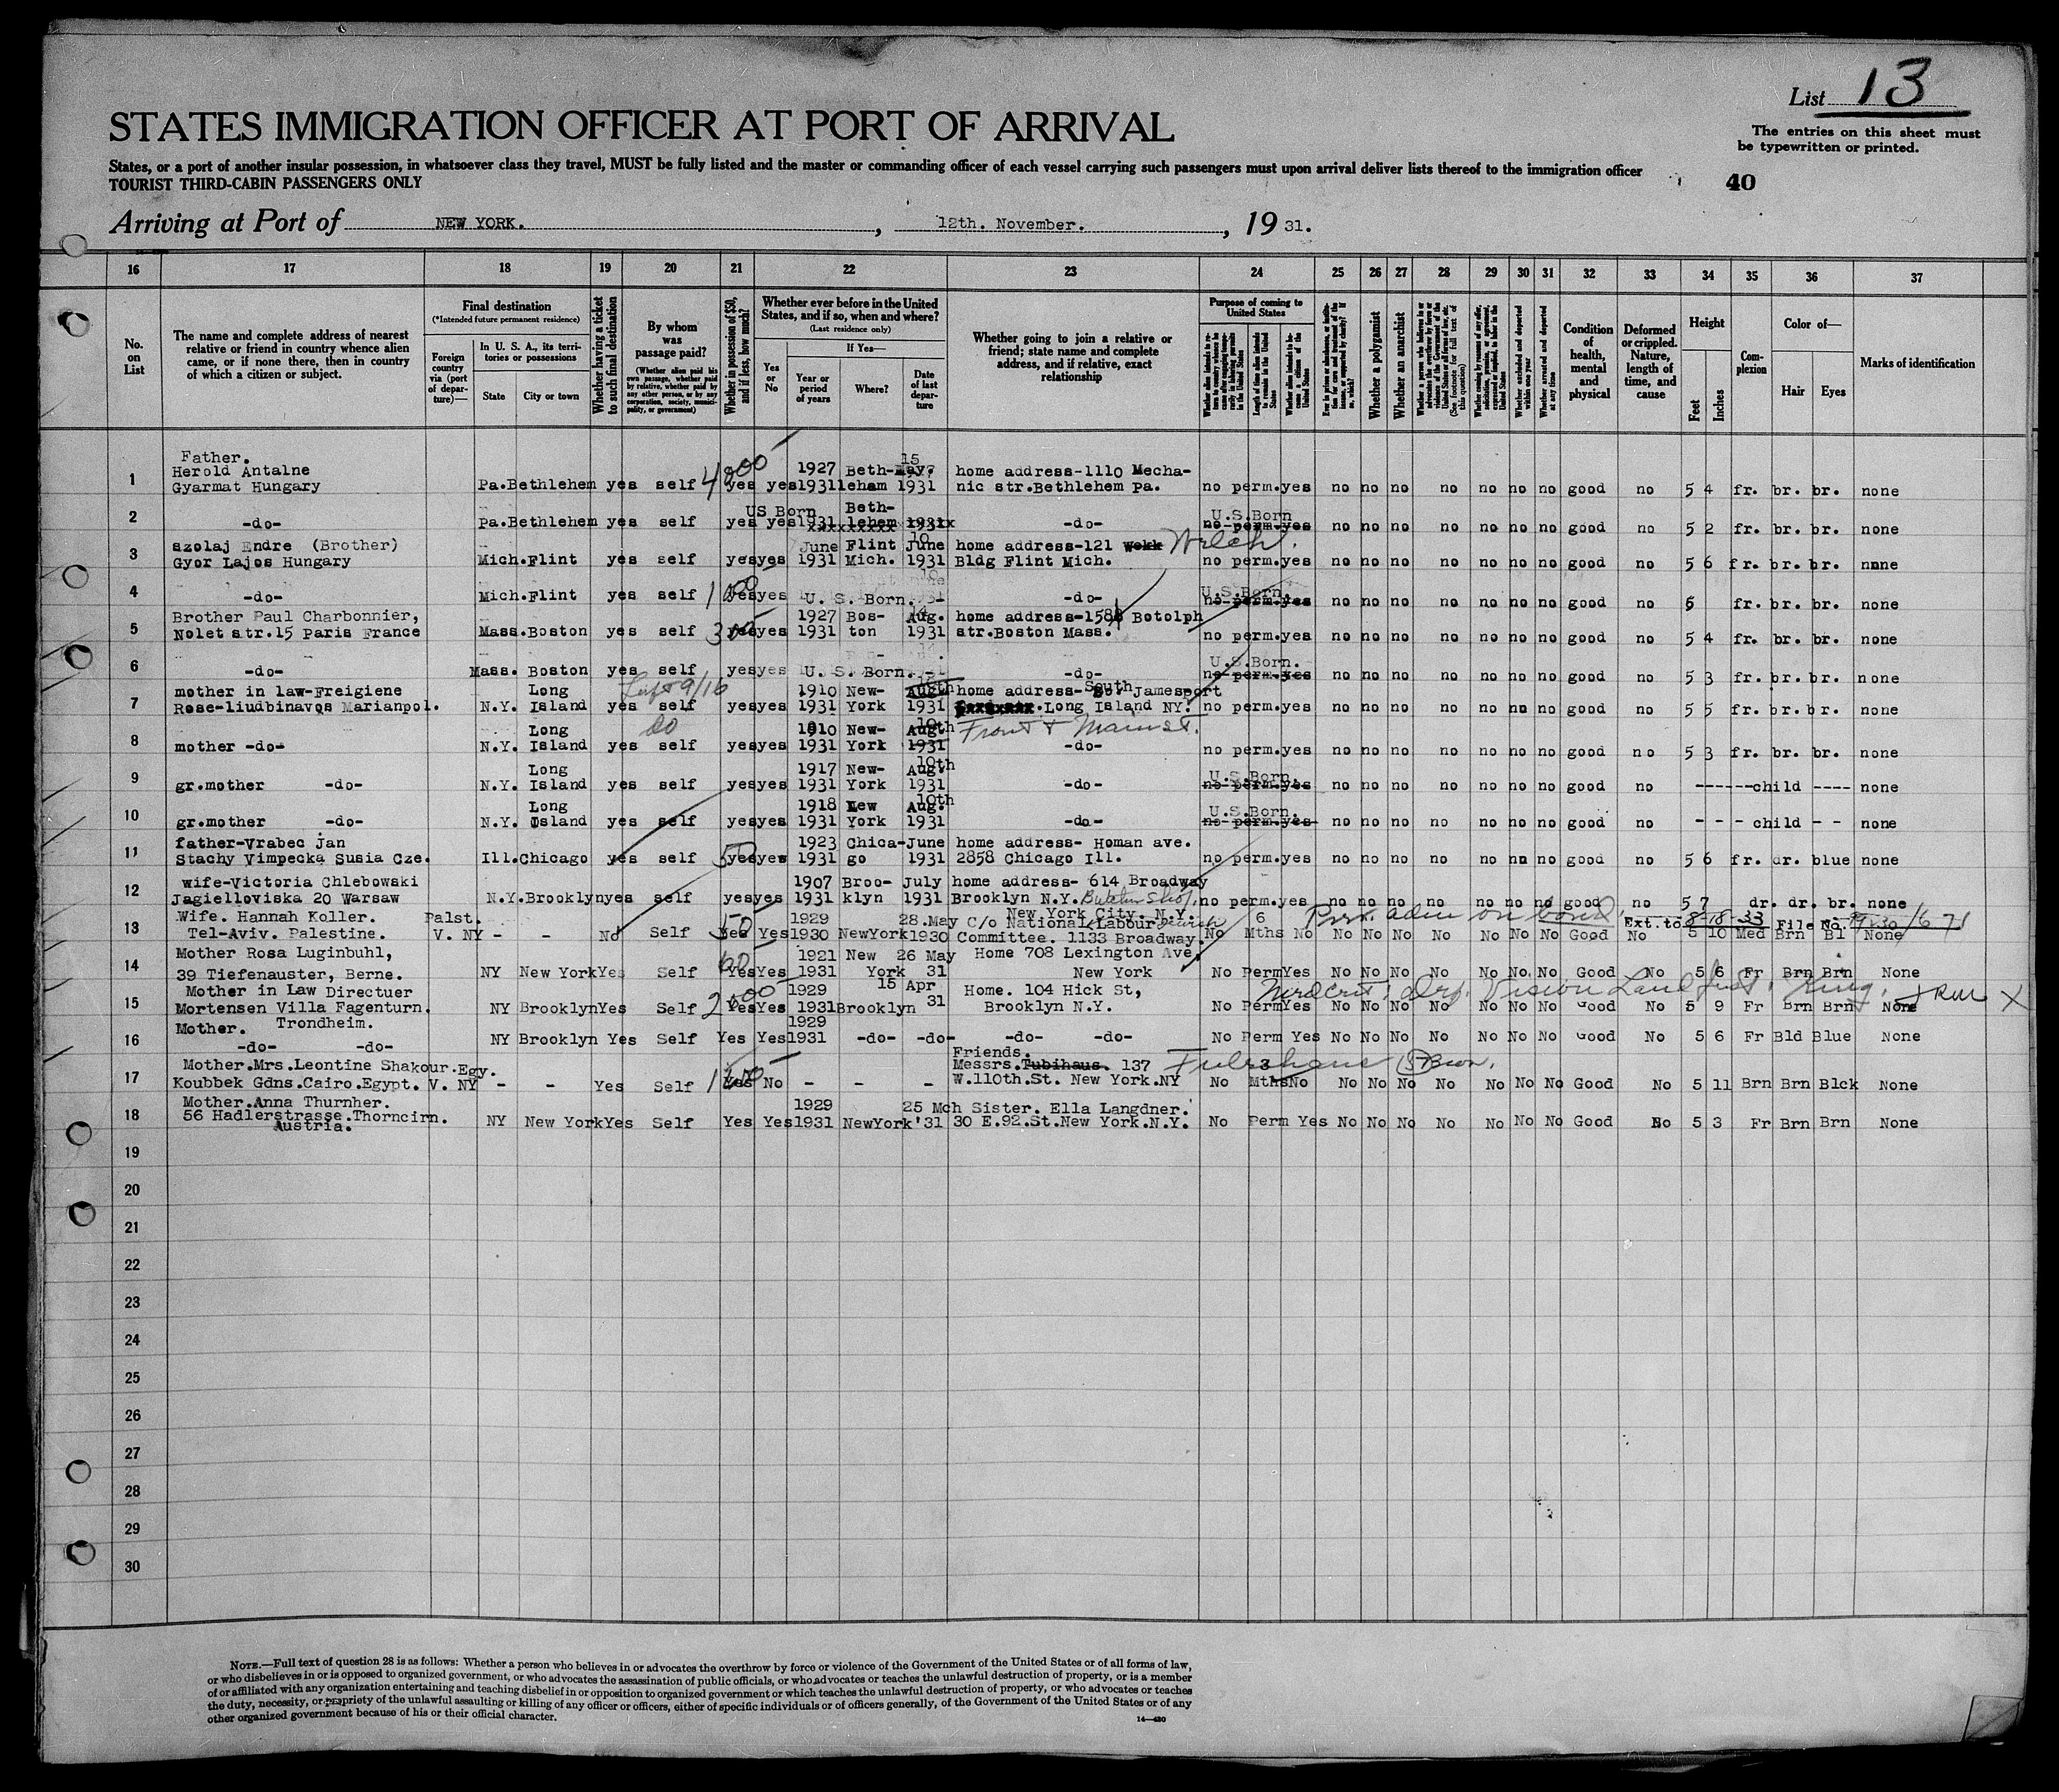 List 13
STATES IMMIGRATION OFFICER AT PORT OF ARRIVAL
The entries on this sheet must
be typewritten or printed.
States, or a port of another insular possession, in whatsoever class they travel, MUST be fully listed and the master or commanding officer of each vessel carrying such passengers must upon arrival deliver lists thereof to the immigration officer
TOURIST THIRD-CABIN PASSENGERS ONLY
40
Arriving at Port of NEW YORK. , 12th. November. , 19 31.
16 17 18 19 20 21 22 23 24 25 26 27 28 29 30 31 32 33 34 35 36 37
No. on List
The name and complete address of nearest
relative or friend in country whence alien
came, or if none there, then in country
of which a citizen or subject.
Final destination
(*Intended future permanent residence)
Foreign country via (port of departure)—
In U. S. A., its territories or possessions
State
City or town
Whether having a ticket to such final destination
By whom was passage paid?
(Whether alien paid his own passage, whether paid by relative, whether paid by any other person, or by any corporation, society, municipality, or government)
Whether in possession of $50, and if less, how much?
Whether ever before in the United States, and if so, when and where?
(Last residence only)
Yes or No
If Yes—
Year or period of years
Where?
Date of last departure
Whether going to join a relative or
friend; state name and complete
address, and if relative, exact
relationship
Purpose of coming to United States
Whether a polygamist
Whether an anarchist
Condition of health, mental and physical
Deformed or crippled. Nature, length of time, and cause
Height
Feet
Inches
Complexion
Color of—
Hair
Eyes
Marks of identification
Father.
15
1 Herold Antalne 1927 Beth- May. home address-1110 Mecha-
Gyarmat Hungary Pa. Bethlehem yes self yes yes 1931 lehem 1931 nic str.Bethlehem pa. no perm.yes no no no no no no no good no 5 4 fr. br. br. none
US Born Beth- U.S.Born
2 -do- Pa. Bethlehem yes self yes yes 1931 lehem 1931 -do- no perm.yes no no no no no no no good no 5 2 fr. br. br. none
szolaj Endre (Brother) June Flint June 10 home address-121 Welch
3 Gyor Lajos Hungary Mich. Flint yes self yes yes 1931 Mich. 1931 Bldg Flint Mich. no perm.yes no no no no no no no good no 5 6 fr. br. br. none
U.S.Born.
4 -do- Mich. Flint yes self yes yes U. S. Born. -do- no perm.yes no no no no no no no good no 5 fr. br. br. none
Brother Paul Charbonnier, 1927 Bos- Aug. 14 home address-158 Botolph
5 Nolet str.15 Paris France Mass. Boston yes self yes yes 1931 ton 1931 str.Boston Mass. no perm.yes no no no no no no no good no 5 4 fr. br. br. none
U.S.Born.
6 -do- Mass. Boston yes self yes yes U. S. Born. -do- no perm.yes no no no no no no no good no 5 3 fr. br. br. none
mother in law-Freigiene Long 1910 New- home address- South Jamesport
7 Rose-liudbinavos Marianpol. N.Y. Island yes self yes yes 1931 York 1931 Long Island NY. no perm.yes no no no no no no no good no 5 5 fr. br. br. none
Long do 1910 New- Aug. 10th Front & Main St.
8 mother -do- N.Y. Island yes self yes yes 1931 York 1931 -do- no perm.yes no no no no no no no good no 5 3 fr. br. br. none
Long 1917 New- Aug. 10th U.S.Born.
9 gr.mother -do- N.Y. Island yes self yes yes 1931 York 1931 -do- no perm.yes no no no no no no no good no ------child ---- none
Long 1918 New Aug. 10th U.S.Born.
10 gr.mother -do- N.Y. Island yes self yes yes 1931 York 1931 -do- no perm.yes no no no no no no no good no - - - child - - none
father-Vrabec jan 1923 Chica- June home address- Homan ave.
11 Stachy Vimpecka Susia Cze. Ill. Chicago yes self 50 yes yes 1931 go 1931 2858 Chicago Ill. no perm.yes no no no no no no no good no 5 6 fr. dr. blue none
wife-Victoria Chlebowski 1907 Broo- July home address- 614 Broadway
12 Jagielloviska 20 Warsaw N.Y. Brooklyn yes self yes yes 1931 klyn 1931 Brooklyn N.Y. Butcher Shop no perm.yes no no no no no no no good no 5 7 dr. dr. br. none
Wife. Hannah Koller. Palst. 1929 28.May New York City. N.Y. C/o National Jewish Labour 6 Prr. adm on bond. Ext. to 8-18-33 File No.
13 Tel-Aviv. Palestine. V. NY - - No Self Yes Yes 1930 NewYork 1930 Committee. 1133 Broadway. No Mths No No No No No No No No Good No 5 10 Med Brn Bl None
Mother Rosa Luginbuhl, 1921 New 26 May Home 708 Lexington Ave,
14 39 Tiefenauster, Berne. NY New York Yes Self 60 Yes Yes 1931 York 31 New York No Perm Yes No No No No No No No Good No 5 6 Fr Brn Brn None
Mother in Law Directuer 1929 15 Apr Home. 104 Hick St,
15 Mortensen Villa Fagenturn. NY Brooklyn Yes Self Yes Yes 1931 Brooklyn 31 Brooklyn N.Y. No Perm Yes No No No No No No No Good No 5 9 Fr Brn Brn None
Mother. Trondheim. 1929
16 -do- -do- NY Brooklyn Yes Self Yes Yes 1931 -do- -do- -do- -do- No Perm Yes No No No No No No No Good No 5 6 Fr Bld Blue None
Friends.
Mother.Mrs.Leontine Shakour.Egy. Messrs. Tubihaus. 137 3
17 Koubbek Gdns.Cairo.Egypt. V. NY - - Yes Self Yes No - - - W.110th.St. New York.NY No Mths No No No No No No No No Good No 5 11 Brn Brn Blck None
Mother.Anna Thurnher. 1929 25 Mch Sister. Ella Langdner.
18 56 Hadlerstrasse.Thorncirn. NY New York Yes Self Yes Yes 1931 NewYork '31 30 E.92.St.New York.N.Y. No Perm Yes No No No No No No No Good No 5 3 Fr Brn Brn None
Austria.
19
20
21
22
23
24
25
26
27
28
29
30
NOTE.—Full text of question 28 is as follows: Whether a person who believes in or advocates the overthrow by force or violence of the Government of the United States or of all forms of law,
or who disbelieves in or is opposed to organized government, or who advocates the assassination of public officials, or who advocates or teaches the unlawful destruction of property, or is a member
of or affiliated with any organization entertaining and teaching disbelief in or opposition to organized government or which teaches the unlawful destruction of property, or who advocates or teaches
the duty, necessity, or propriety of the unlawful assaulting or killing of any officer or officers, either of specific individuals or of officers generally, of the Government of the United States or of any
other organized government because of his or their official character.
14—420